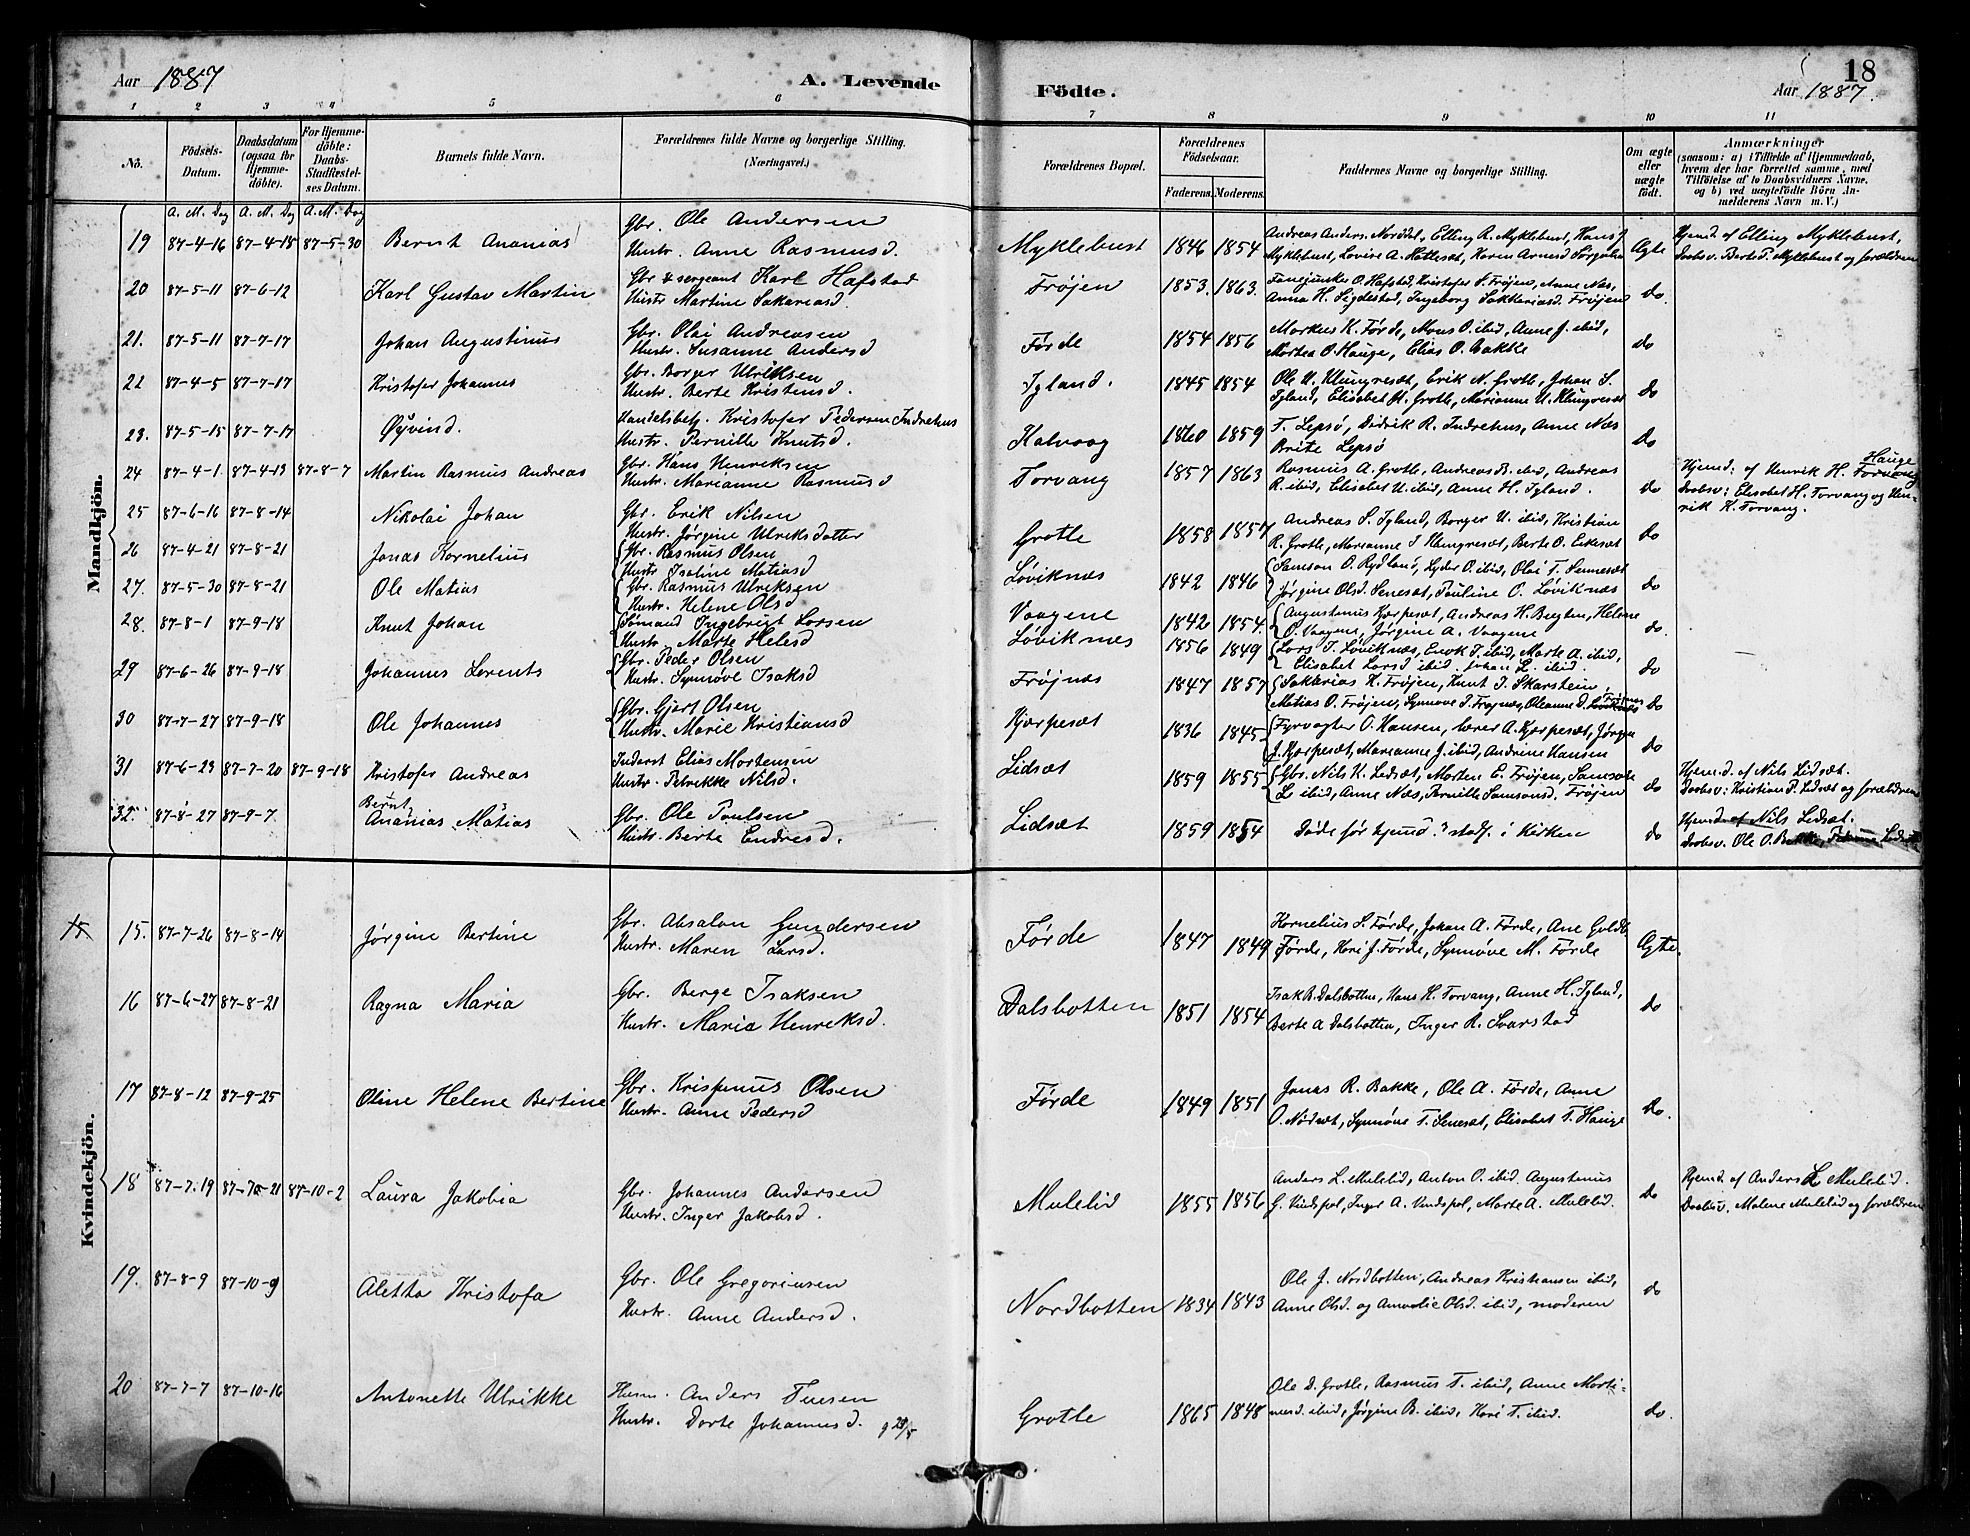 Aar 1887
A. Levende
Födte.
18
Aar 1887.
1 2 3 4 5 6 7 8 9 10 11
Nö.
Födsels-Datum.
Daabsdatum (ogsaa for Hjemme-döbte).
For Hjemme-döbte: Daabs-Stadfæstel-ses Datum.
Barnets fulde Navn.
Forældrenes fulde Navne og borgerlige Stilling. (Næringsvei.)
Forældrenes Bopæl.
Forældrenes Födselsaar.
Faderens. Moderens.
Faddernes Navne og borgerlige Stilling.
Om ægte eller uægte födt.
Anmærkninger
(saasom: a) i Tilfælde af Hjemmedaab, hvem der har forrettet samme, med Tilföielse af to Daabsvidners Navne, og b) ved uægtefödte Börn An-melderens Navn m. V.)
A. M. Dag A. M. Dag A. M. Dag
Mandkjön.
19 87-4-16 87-4-18 87-5-30 Bernt Ananias Gbr. Ole Andersen
Hustr. Anne Rasmusd. Myklebust 1846 1854 Andreas Anders. Norddal, Elling R. Myklebust, Hans J
Myklebust, Lovise A. Hatleset, Karen Arnesd Sørgulen Ægte Hjemd. af Elling Myklebust,
Daabsv. Berte T. Myklebust og forældrene
20 87-5-11 87-6-12 Karl Gustav Martin Gbr & sergeant Karl Hafstad
Hustr Martine Sakariasd. Frøjen 1853. 1863. O. Hafstad, Kristofer S. Frøjen, Anne Næs,
Anna H. Sigdestad, Ingeborg Sakkariasd. Frøjen do.
21. 87-5-11 87-7-17 Johan Augustinus Gbr. Olai Andreasen
Hustr. Susanne Andersd Førde 1854 1856 Markus K. Førde, Mons O. ibid, Anne J. ibid,
Morten O. Hauge, Elias O. Bakke do
22 87-4-5 87-7-17 Kristofer Johannes Gbr. Borger Ulriksen
Hustr. Berte Kristensd. Igland. 1845 1854 Ole U. Klungresæt, Erik N. Grotle, Johan S.
Igland, Elisabet H. Grotle, Marianne U. Klungresæt do
23. 87-5-15 87-7-17 Øyvind. Handelsbetj. Kristofer Pedersen Indrehus
Hustr. Pernille Knutsd. Kalvaag 1860 1859 F. Lepsø, Didrik R. Indrehus, Anne Næs
Brite Lepsø do
24 87-4-1 87-4-13 87-8-7 Martin Rasmus Andreas Gbr. Hans Henriksen
Hustr. Marianne Rasmusd Torvang 1857 1863 Rasmus A. Grotle, Andreas B. ibid, Andreas
R. ibid, Elisabet U. ibid, Anne H. Igland. do Hjemd: af Henrik H. Hauge Torvang
Daabsv: Elisabet H. Torvang og Hen-
rik K. Torvang.
25 87-6-16 87-8-14 Nikolai Johan Gbr. Erik Nilsen
Hustr. Jørgine Ulriksdatter Grotle 1858 1857 Andreas S. Igland, Borger U. ibid, Kristian
R. Grotle, Marianne J Klungresæt, Berte O. Eikesæt do
26 87-4-21 87-8-21 Jonas Kornelius Gbr. Rasmus Olsen
Hustr Iseline Matiasd Løviknæs 1842 1846 Samson O. Rydland, Ryder O. ibid, Olai T. Sennesæt
Jørgine Olsd. Senesæt, Pauline O. Løviknæs do
27. 87-5-30 87-8-21 Ole Matias Gbr. Rasmus Ulriksen
Hustr. Helene Olsd Vaagene 1842 1854. Augustinus Kjerpesæt, Andreas H. Buglen, Helene
O. Vaagene, Jørgine A. Vaagene do.
28. 87-8-1 87-9-18 Knut Johan Sømand Ingebrigt Larsen
Hustr. Marte Helesd Løviknæs 1856 1849 Lars T. Løviknæs, Enok T. ibid, Marte A. ibid,
Elisabet Larsd ibid. Johan L. ibid. do
29 87-6-26 87-9-18 Johannes Lorents Gbr. Peder Olsen
Hustr. Synnøve Isaksd Frøjnæs 1847 1857 Sakkarias H. Frøjen, Knut J. Skarstein,
Matias O. Frøjen, Synnove J. Frøjnæs, Oleanne D. Frøjnæs do
30 87-7-27 87-9-18 Ole Johannes Gbr. Gjert Olsen
Hustr. Marie Kristiansd Kjærpesæt 1836 1845 Fyrvogter O. Hansen, A. Kjærpesæt, Jørgen
J. Kjærpesæt, Marianne J. ibid, Andrine Hansen do
31 87-6-23 87-7-20 87-9-18 Kristofer Andreas Inderst Elias Mortensen
Hustr. Petrikke Nilsd. Lidsæt 1859 1855 Gbr. Nils K. Lidsæt, Morten E. Frøjen, Samson
L. ibid, Anne Næs, Pernille Samsonsd. Frøjen do Hjemd. af Nils Lidsæt.
Daabsv: Kristian P. Lidsæt og forældrene
32. 87-8-27 87-9-7 Bernt Ananias Matias Gbr. Ole Paulsen
Hustr. Berte Endresd. Lidsæt 1859 1854 Døde før hjemd. stadf. i Kirken do Hjemd. af Nils Lidsæt.
Daabsv. Ole O.
Kvindekjön.
15 15. 87-7-26 87-8-14 Jørgine Bertine Gbr. Absalon Gundersen
Hustr. Maren Larsd. Førde 1847 1849 Kornelius S. Førde, Johan A. Førde, Ane Guldb.
Førde, Kari J. Førde, Synnøve M. Førde Ægte.
16 87-6-27 87-8-21 Ragna Maria Gbr. Berge Isaksen
Hustr. Maria Henriksd. Dalsbotten 1851 1854 Isak B. Dalsbotten, Hans H. Torvang, Anne H. Igland,
Berte A Dalsbotten, Inger R. Svarstad do
17 87-8-12 87-9-25 Oline Helene Bertine Gbr. Krispinus Olsen
Hustr. Anne Pedersd Førde 1849 1851 Jonas R. Bakke, Ole A. Førde, Anne
O. Nødset, Synnøve T. Senesæt, Elisabet T. Hauge do.
18 87-7-19 87-7-21 87-10-2 Laura Jakobia Gbr. Johannes Andersen
Hustr. Inger Jakobsd. Mulelid 1855 1856 Anders L. Mulelid, Anton O. ibid. Augustinus
G. Vindspol, Inger A. Vindspol, Marte A. Mulelid. do Hjemd af Anders L Mulelid.
Daabsv. Malene Mulelid og forældrene
19. 87-8-9 87-10-9 Aletta Kristofa Gbr. Ole Gregoriusen
Hustr. Anne Andersd. Nordbotten 1834 1843 Ole J. Nordbotten, Andreas Kristiansen ibid,
Anne Olsd. og Amalie Olsd. ibid, moderen do
20 87-7-7 87-10-16 Antonette Ulrikke Husm. Anders Tuesen
Hustr. Dorte Johannesd. Grotle 1865 1848 Ole D. Grotle, Rasmus T. ibid, Anne Morti-
nusd. ibid, Jørgine B. ibid, Kari T. ibid. do.